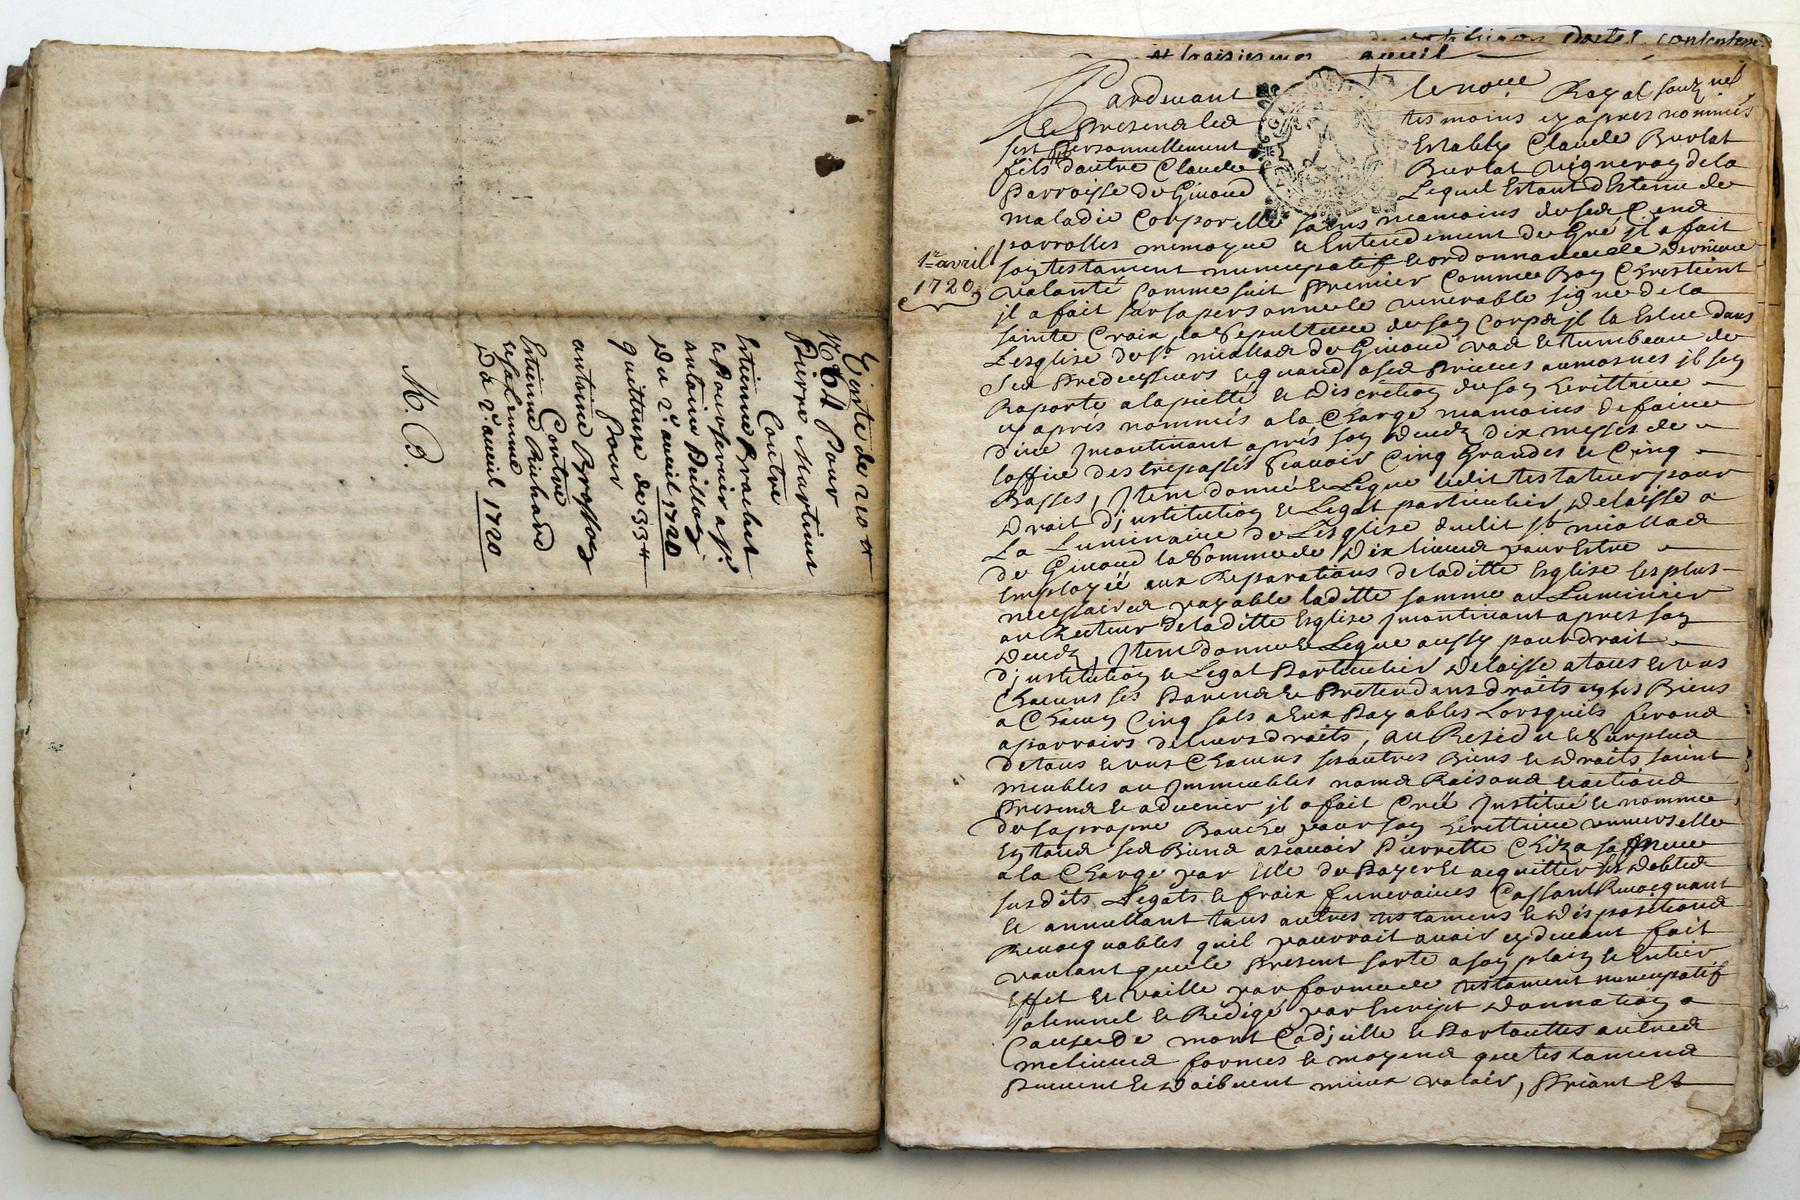 Vante de 210 tt
N° 64 Pour
Pierre Martinet
Contre
Estienne Brachet
Antoine
Du 2e auril 1720
quittance de 33 tt
Pour
antoine
Contre
Estienne Richard
et sa femme
Du 2e auril 1720
M. B.
1er auril
1720
Pardeuant le no.re Royal souz.né
& Presens les tesmoins cy apres nommés
fut Personnellement Estably Claude Burlat
fils d'autre Claude Burlat vigneron de la
Parroisse de Giuaud Lequel Estant destenu de
maladie Corporelle sains neamoins de ses Cens
parrolles memoyre & Entendement de Gre jl a fait
son testament nuncupatif & ordonnance de derniere
valanté Comme suit Premier Comme Bon Chrestient
il a fait sur sa personne le venerable signe de la
sainte Croix, la sepulture de son Corps jl la Eslue dans
Lesglise de St nicollas de Giuaud vas & tumbeau de
ses Predecesseurs & quand a ses Prieres aumosnes jl sen
Raporte a la pietté & discretion de son herittiere
cy apres nommés a la Charge neamoins de faire
dire jncontinant aprés son decedz dix messes de
loffice des trepassés scauoir Cinq Grandes & Cinq
Basses, jtem donne & Legue ledit testateur pour
droit d'jnstitution & Legat particulier delaisse a
La Luminaire de Lesglise dudit St nicollas
de Giuaud la somme de dix liures pour Estre
Employeé aux Reparations de laditte Esglise les plus
necessaires payable laditte somme au Luminier
ou Recteur de laditte Esglise jncontinant apres son
decedz, jtem donne & Legue aussy pour droit
d'jnstitution & Legat Particulier delaisse a tous & uns
Chacuns ses Parens & Pretendans droits en ses Biens
a Chacun Cinq sols a Eux Payables Lorsquils feront
aparroirs de leurs droits, au Residu & surplus
de tous & uns Chacuns ses autres Biens & droits soint
meubles ou jmmeubles noms Raisons & actions
Presens & aduenir jl a fait Creé jnstitué & nommé
de sa propre Bouche pour son herittiere vniuerselle
En tous ses Biens ascauoir Pierrette sa femme
a la Charge par Elle de Payer & acquitter ses debtes
susdits Legats & fraix funeraires Cassant Reuocquant
& annullant tous autres testamens & dispositions
Reuocquables quil pourroit auoir cy deuant fait
voulant que le Present sorte a son plain & Entier
Effet & vaille par forme de testament nuncupatif
solemnel & Redigé par Escript donnation a
Cause de mort Codjcille & Partouttes autres
melieures formes & moyens que testamens
Peuuent & doibuent mieux valoir, Priant Et